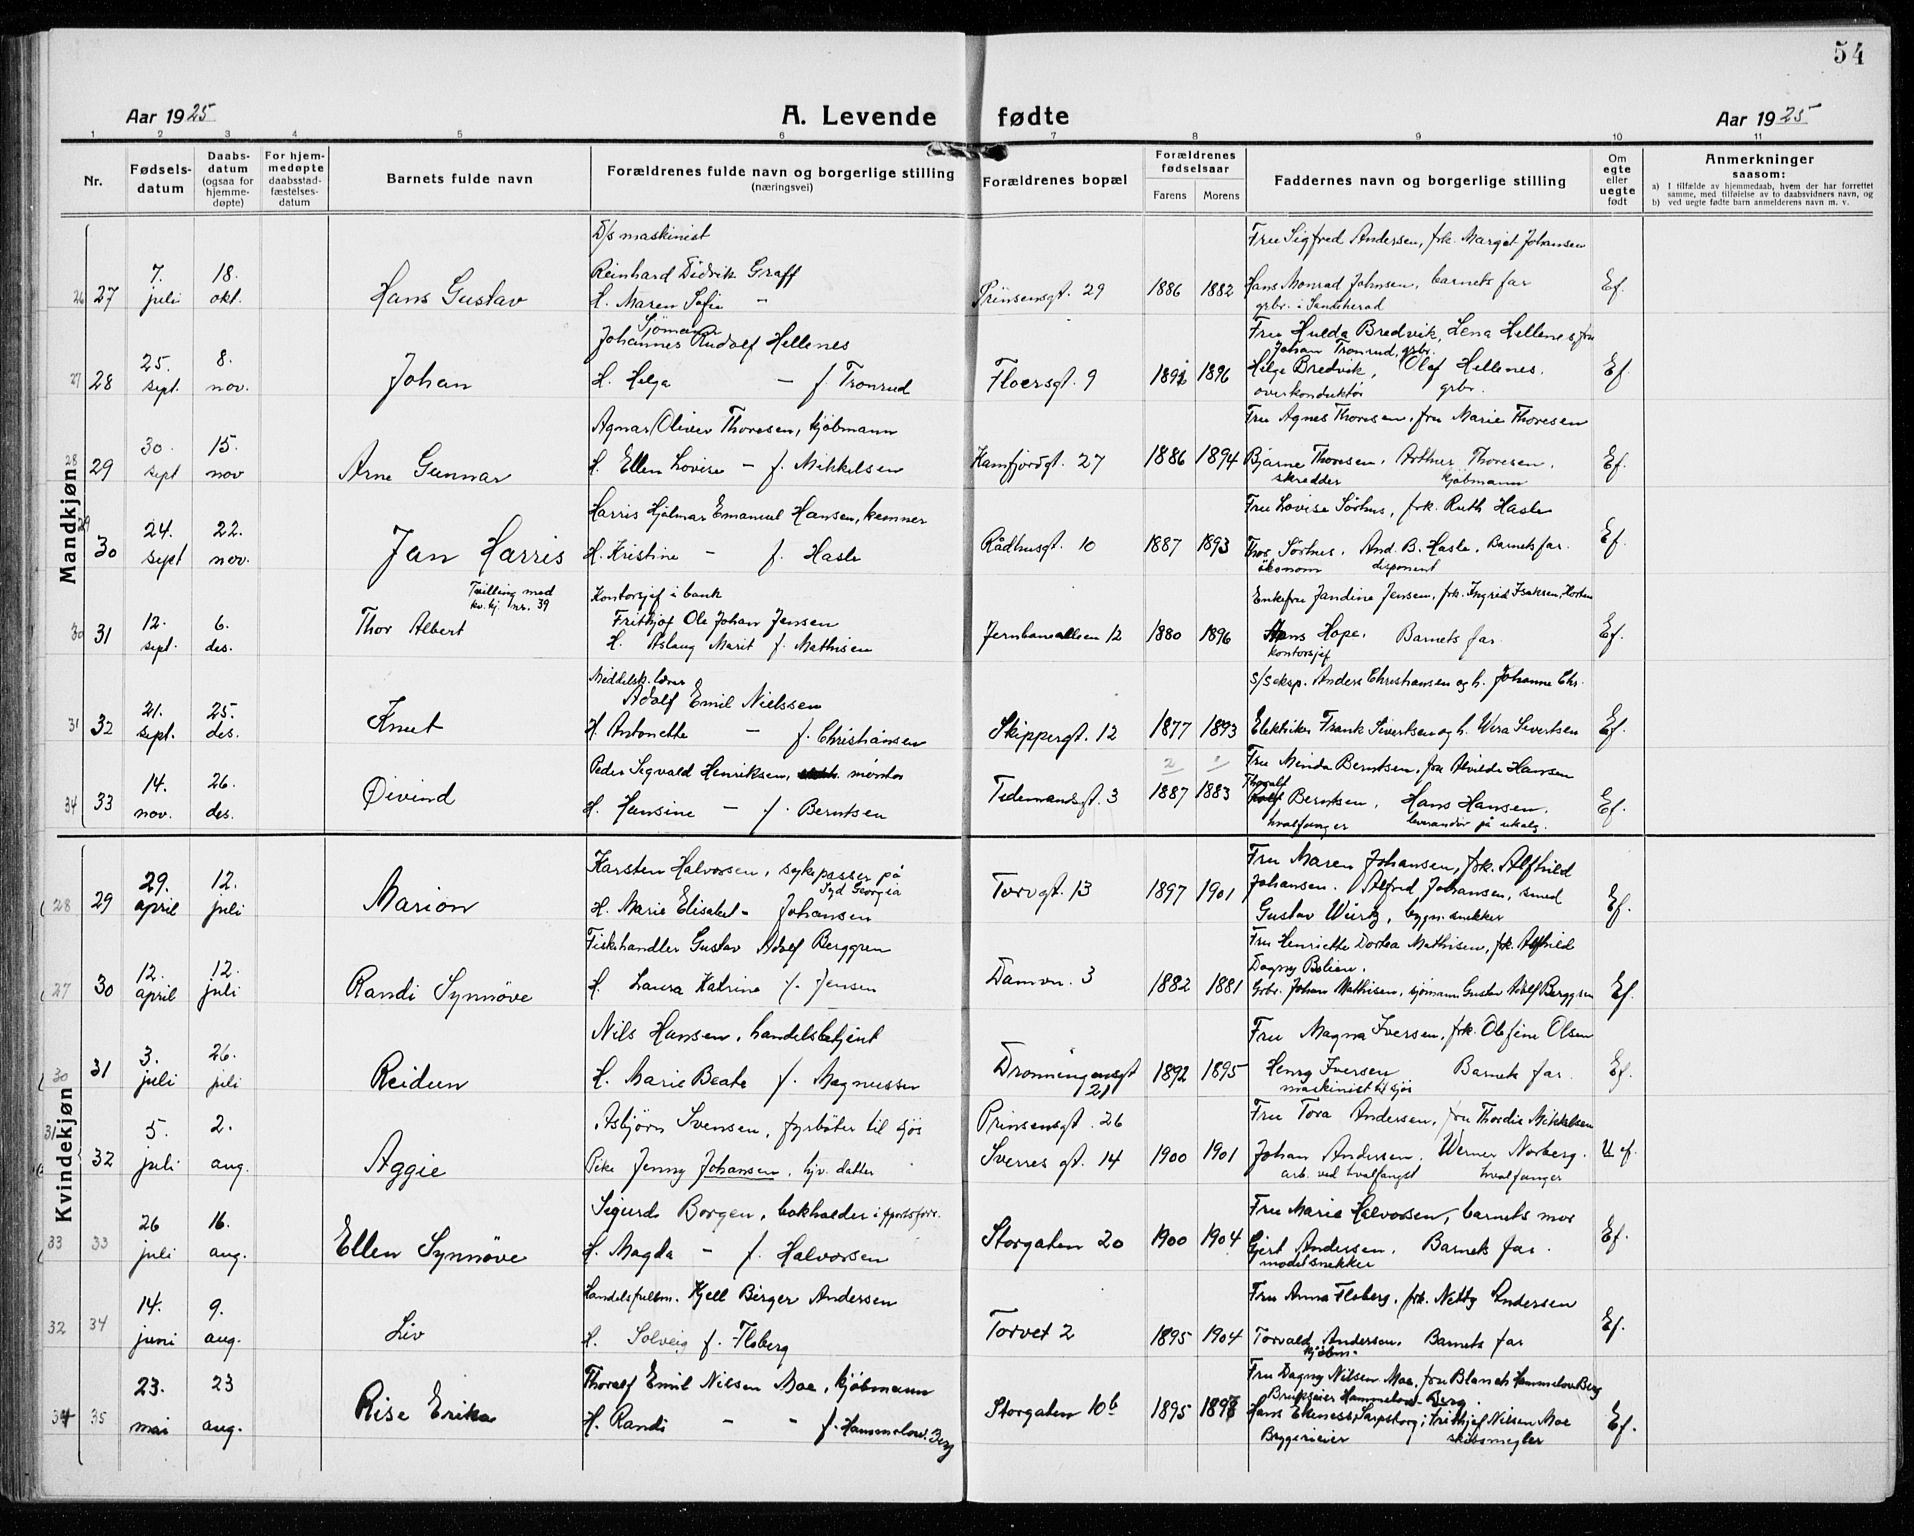 54
Aar 1925 A. Levende fødte Aar 1925
1 2 3 4 5 6 7 8 9 10 11
Nr.
Fødsels-
datum
Daabs-
datum
(ogsaa for
hjemme-
døpte)
For hjem-
medøpte
daabsstad-
fæstelses-
datum
Barnets fulde navn
Forældrenes fulde navn og borgerlige stilling
(næringsvei)
Forældrenes bopæl
Forældrenes
fødselsaar
Farens Morens
Faddernes navn og borgerlige stilling
Om
egte
eller
uegte
født
Anmerkninger
saasom:
a) I tilfælde av hjemmedaab, hvem der har forrettet
samme, med tilføielse av to daabsvidners navn, og
b) ved uegte fødte barn anmelderens navn m. v.
Mandkjøn
26 27
7.
juli
18.
okt.
Hans Gustav
D/s maskinist
Reinhard Didrik Graff
H. Maren Sofie "
Prinsensgt. 29
1886 1882
Fru Sigfred Andersen, frk. Margit Johansen
Hans Monrad Johnsen, barnets far
grbr. i Sandeherad
Ef.
27 28
25.
sept.
8.
nov.
Johan
Sjömann
Johannes Rudolf Hellenes
H. Helga — f. Tronrud
Floersgt. 9
1892 1896
Fru Hulda Bredvik, Lena Hellenes, fru
Johan Tronrud, grbr.
Helge Bredvik, Olaf Hellenes.
overkonduktör grbr.
Ef.
28 29
30.
sept
15.
nov
Arne Gunnar
Agnar Oliver Thoresen, kjöbmann
H. Ellen Lovise — f. Mikkelsen
Kamfjordgt. 27
1886 1894
Fru Agnes Thoresen, fru Marie Thoresen
Bjarne Thoresen, Arthur Thoresen.
skredder kjöbmann
Ef.
29 30
24.
sept
22.
nov.
Jan Harris
Harris Hjalmar Emanuel Hansen, kemner
H. Kristine — f. Hasle
Rådhusgt. 10
1887 1893
Fru Lovise Sörhus, frk. Ruth Hasle
Thor Sörhus. And. B. Hasle. Barnets far.
ökonom disponent
Ef.
30 31
12.
sept.
6.
des.
Tvilling med
kv. kj. nr. 39
Thor Albert
Kontorsjef i bank
Frithjof Ole Johan Jensen
H. Aslaug Marit f. Mathisen
Jernbanealleen 12
1880 1896
Enkefru Jandine Jensen, frk. Ingrid Isaksen, Horten
Hans Hope. Barnets far.
kontorsjef
Ef.
31 32
21.
sept.
25.
des.
Knut
Middelsk. lærer
Adolf Emil Nielssen
H. Antonette — f. Christiansen
Skippergt. 12
1877 1893
S/S eksp. Anders Christiansen og h. Johanne Chr.
Elektriker Frank Sivertsen og h. Wera Sivertsen
Ef.
34 33
14.
nov.
26.
des.
Öivind
Peder Sigvald Henriksen, montör
H. Hansine — f. Berntsen
Tidemandsgt. 3
1887 1883
Fru Minda Berntsen, fru Alvilde Hansen
Thoralf
Berntsen, Hans Hansen,
hvalfanger leverandör på utsalg.
Ef.
Kvindekjøn
28 29
29.
april
12.
juli
Marion
Karsten Halvorsen, sykepasser på
Syd Georgia
H. Marie Elisabet — Johansen
Torvgt. 13
1897 1901
Fru Maren Johansen, frk. Alfhild
Johansen. Alfred Johansen, smed
Gustav Würtz, bygn. snekker
Ef.
27 30
12.
april
12.
juli
Randi Synnöve
Fiskehandler Gustav Adolf Berggren
H. Laura Katrine f. Jensen
Damvn. 3
1882 1881
Fru Henriette Dortea Mathisen, frk. Alfhild
Dagny Bolien.
Grbr. Johan Mathisen, sjömann Gustav Adolf Berggren
Ef.
30 31
3.
juli
26.
juli
Reidun
Nils Hansen, handelsbetjent
H. Marie Beate f. Magnussen
Dronningensgt
21
1892 1895
Fru Magna Iversen, frk. Olefine Olsen
Henry Iversen Barnets far.
maskinist til sjös
Ef.
31 32
5.
juli
2.
aug.
Aggie
Asbjörn Svensen, fyrböter til sjös
Pike Jenny Johansen, hjv. datter
Prinsensgt. 26
Sverres gt. 14
1900 1901
Fru Tora Andersen, fru Thordis Mikkelsen
Johan Andersen. Werner Norberg.
arb. ved hvalfangst hvalfanger
U ef.
33 33
26
juli
16.
aug.
Ellen Synnöve
Sigurd Borgen, bokholder i sportsforr.
H. Magda — f. Halvorsen
Storgaten 20
1900 1904
Fru Marie Halvorsen, barnets mor
Gjert Andersen. Barnets far.
modelsnekker
Ef.
32 34
14.
juni
9.
aug.
Liv
Handelsfullm. Kjell Birger Andersen
H. Solveig f. Floberg
Torvet 2
1895 1904
Fru Anna Floberg, frk. Netty Andersen
Torvald Andersen. Barnets far
kjöbm.
Ef.
34 35
23.
mai
23
aug.
Rise Erika
Thoralf Emil Nilsen Moe, kjöbmann
H. Randi — — f. Hammelow-Berg
Storgaten 10b
1895 1898
Fru Dagny Nilsen Moe, fru Blanch Hammelow Berg
Brukseier Hammelow-Berg.
Hans Ekeness, Sarpsborg; Frithjof Nilsen Moe
Bryggerieier skibsmegler
Ef.